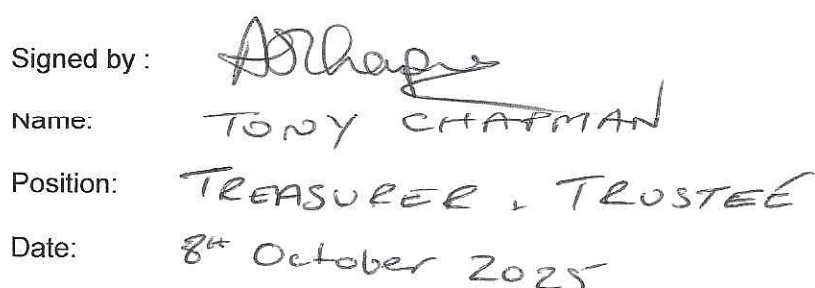 Signed by :
Name: TONY CHAPMAN
Position: TREASURER, TRUSTEE
Date: 8th October 2025